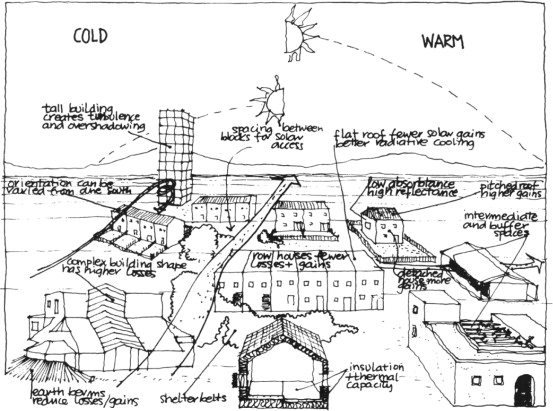 COLD
WARM
tall building
creates turbulence
and overshadowing
spacing between
blocks for solar
access
flat roof fewer solar gains
better radiative cooling
orientation can be
varied from due south
low absorbtance
high reflectance
pitched roof
higher gains
intermediate
and buffer
spaces
complex building shape
has higher losses
row houses fewer
losses + gains
detached
house more
gains
insulation
+ thermal
capacity
earth berms
reduce losses/gains
shelter belts